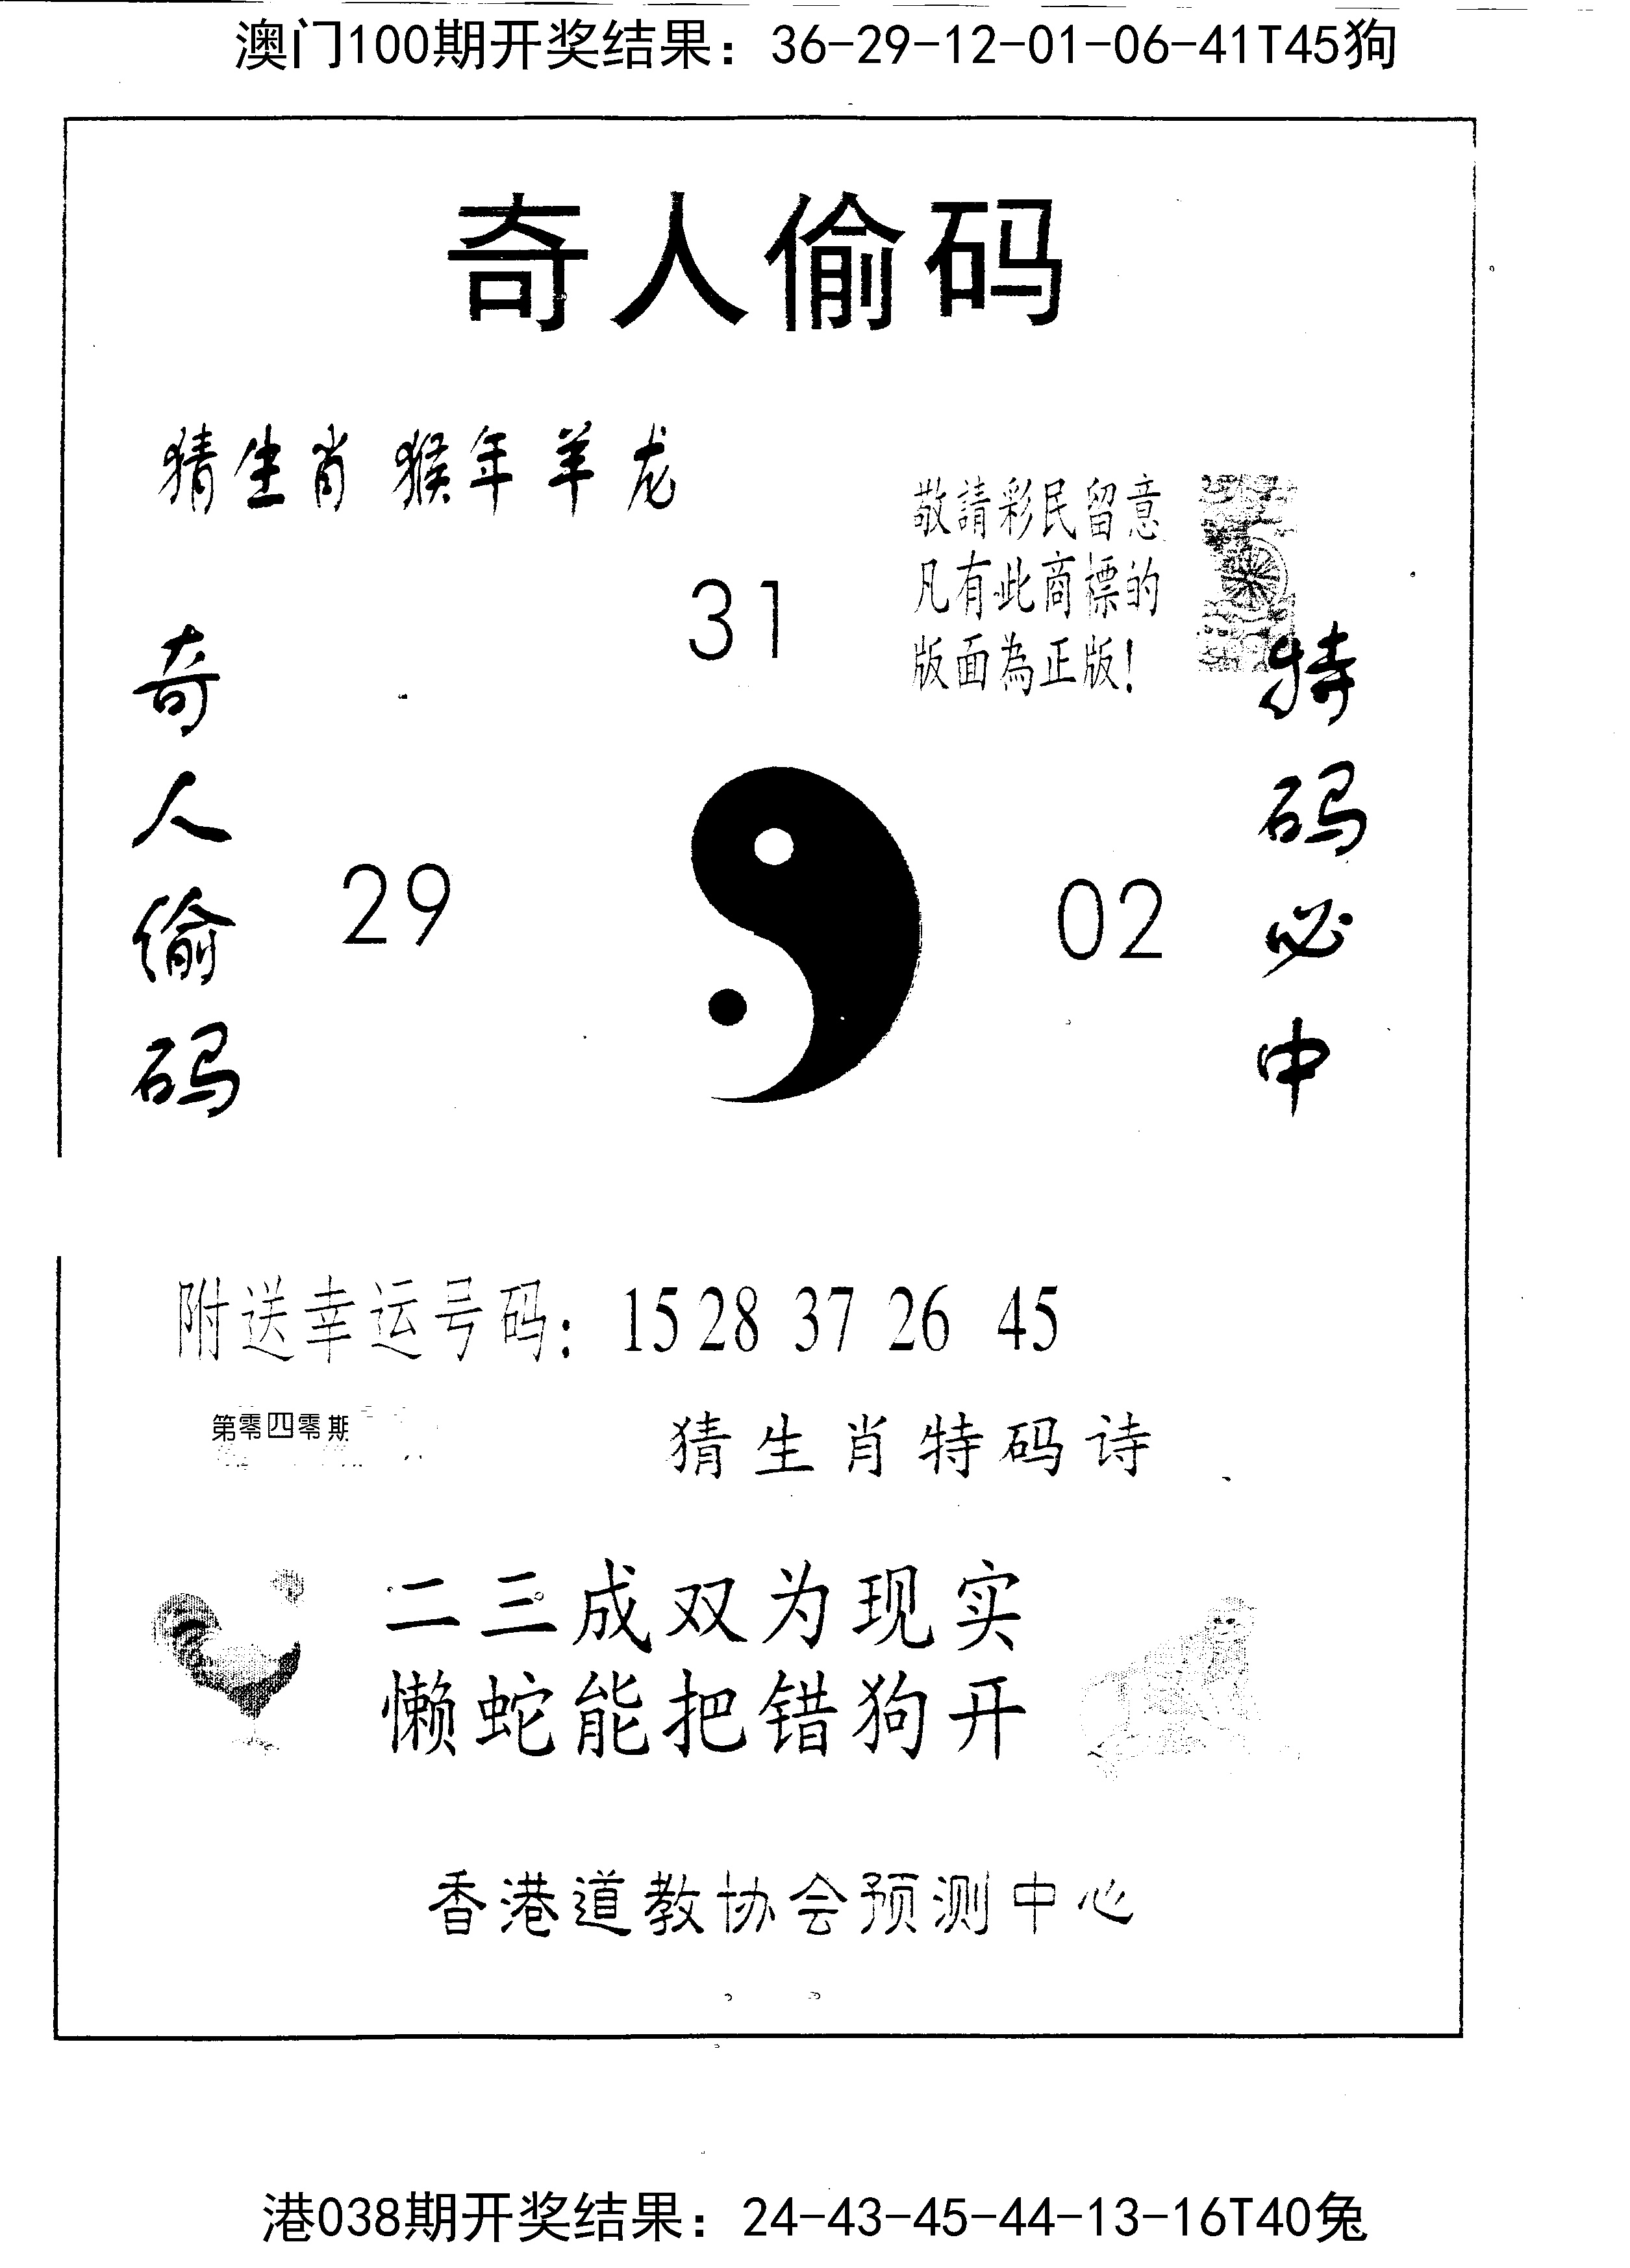 澳门100期开奖结果：36-29-12-01-06-41T45狗
奇人偷码
猜生肖 猴年羊龙
敬請彩民留意
凡有此商標的
版面為正版!
31
奇人偷码
特码必中
29
02
附送幸运号码: 15 28 37 26 45
第零四零期
猜生肖特码诗
二三成双为现实
懒蛇能把错狗开
香港道教协会预测中心
港038期开奖结果：24-43-45-44-13-16T40兔